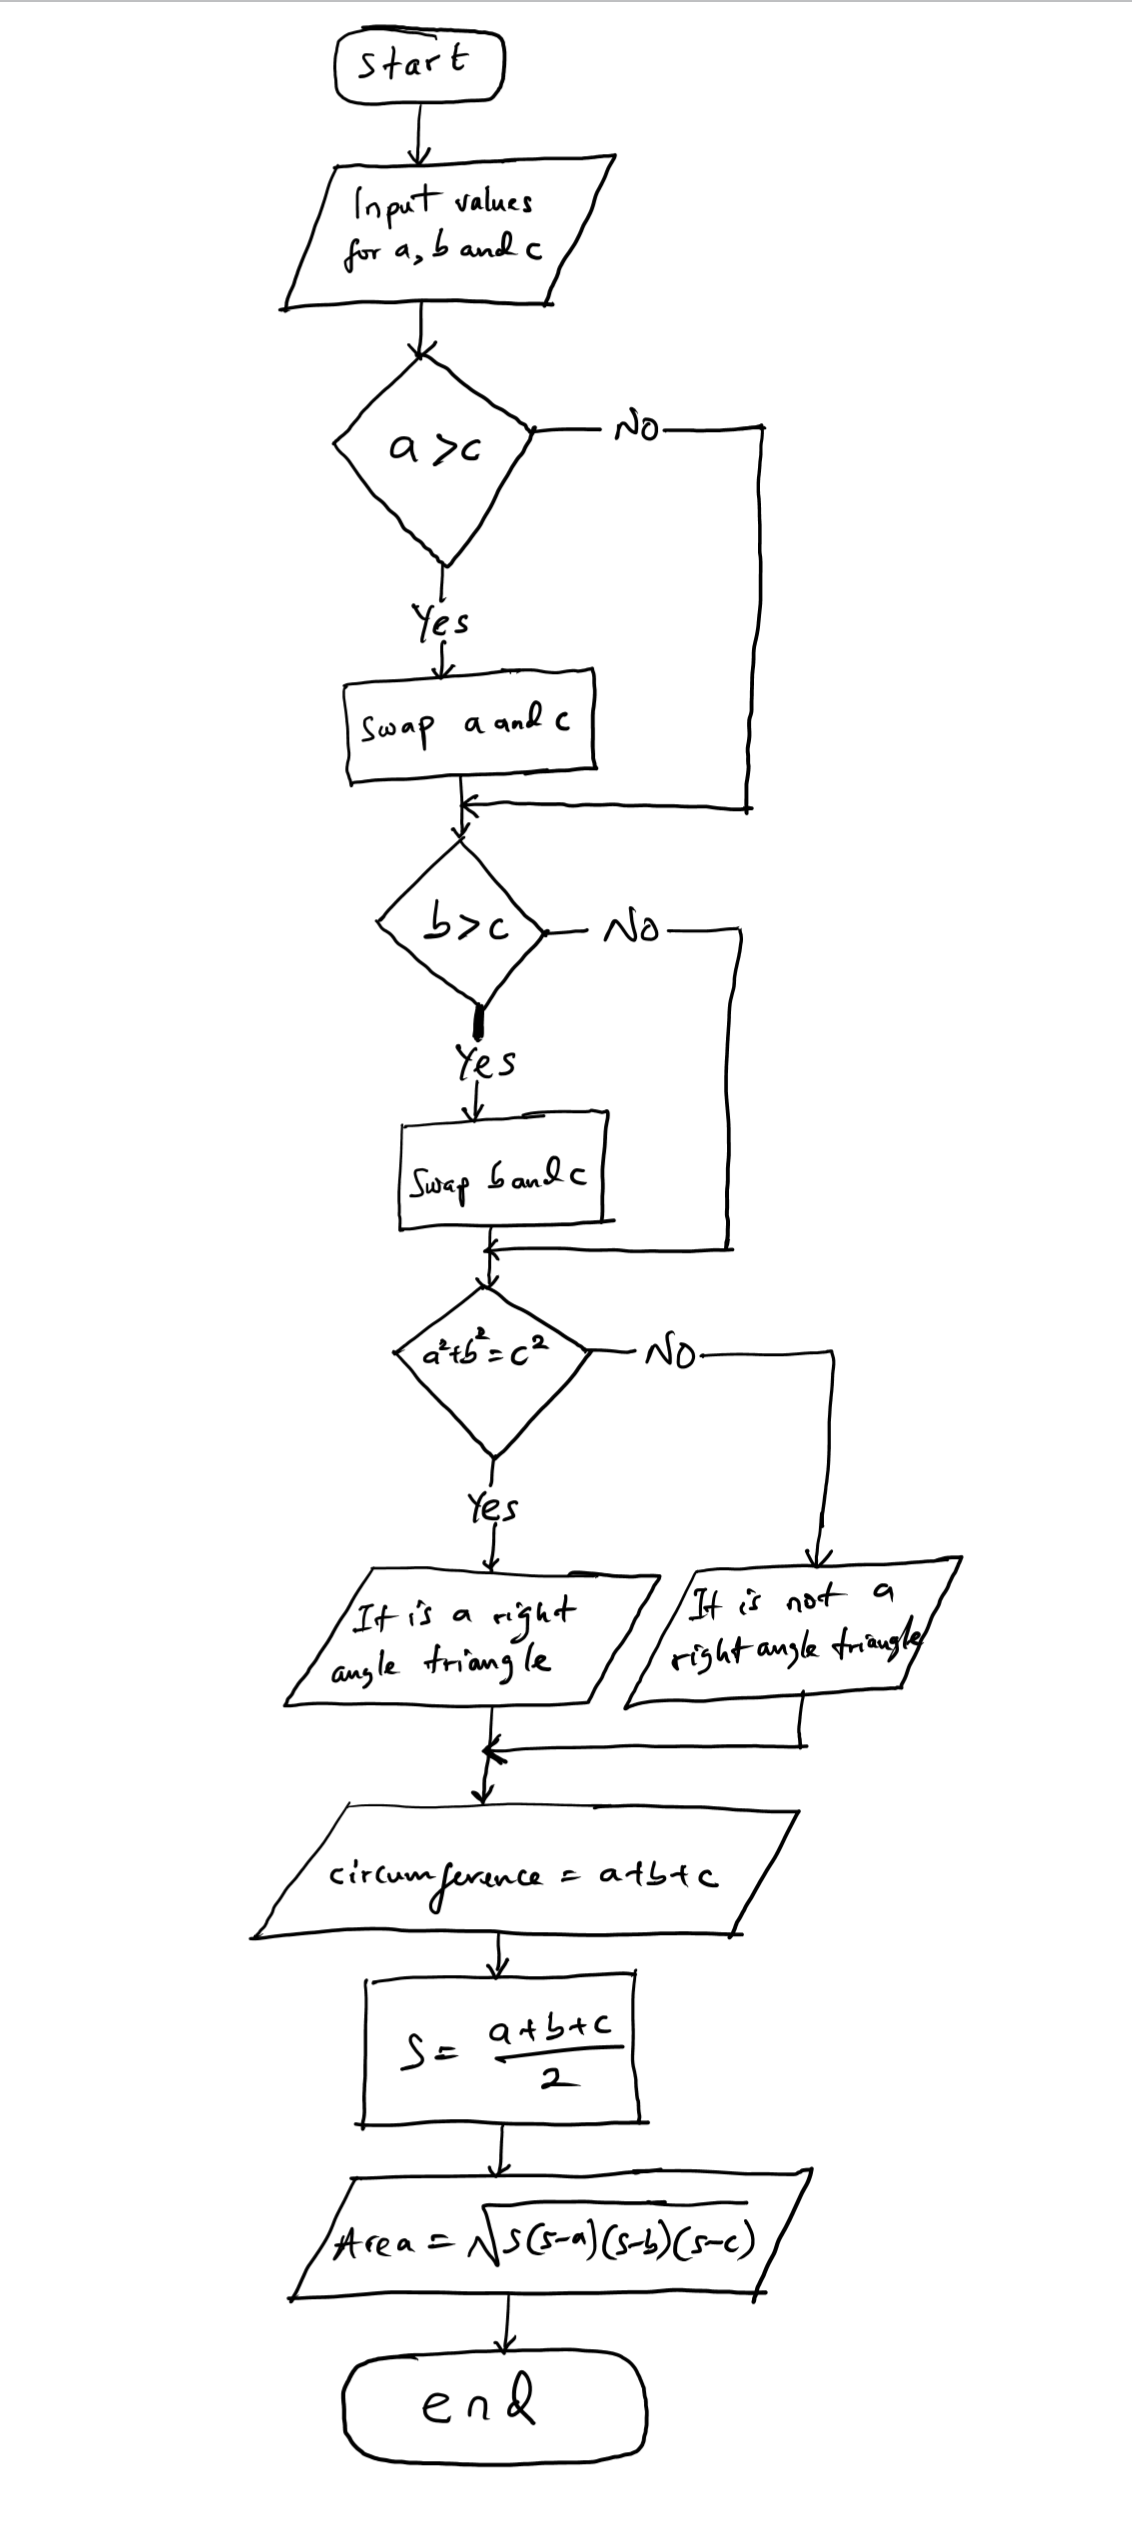 Start
Input values
for a, b and c
a > c
No
Yes
Swap a and c
b > c
No
Yes
Swap b and c
a²+b² = c²
No
Yes
It is a right
angle triangle
It is not a
right angle triangle
circumference = a+b+c
S = (a+b+c)/2
Area = √s(s-a)(s-b)(s-c)
end